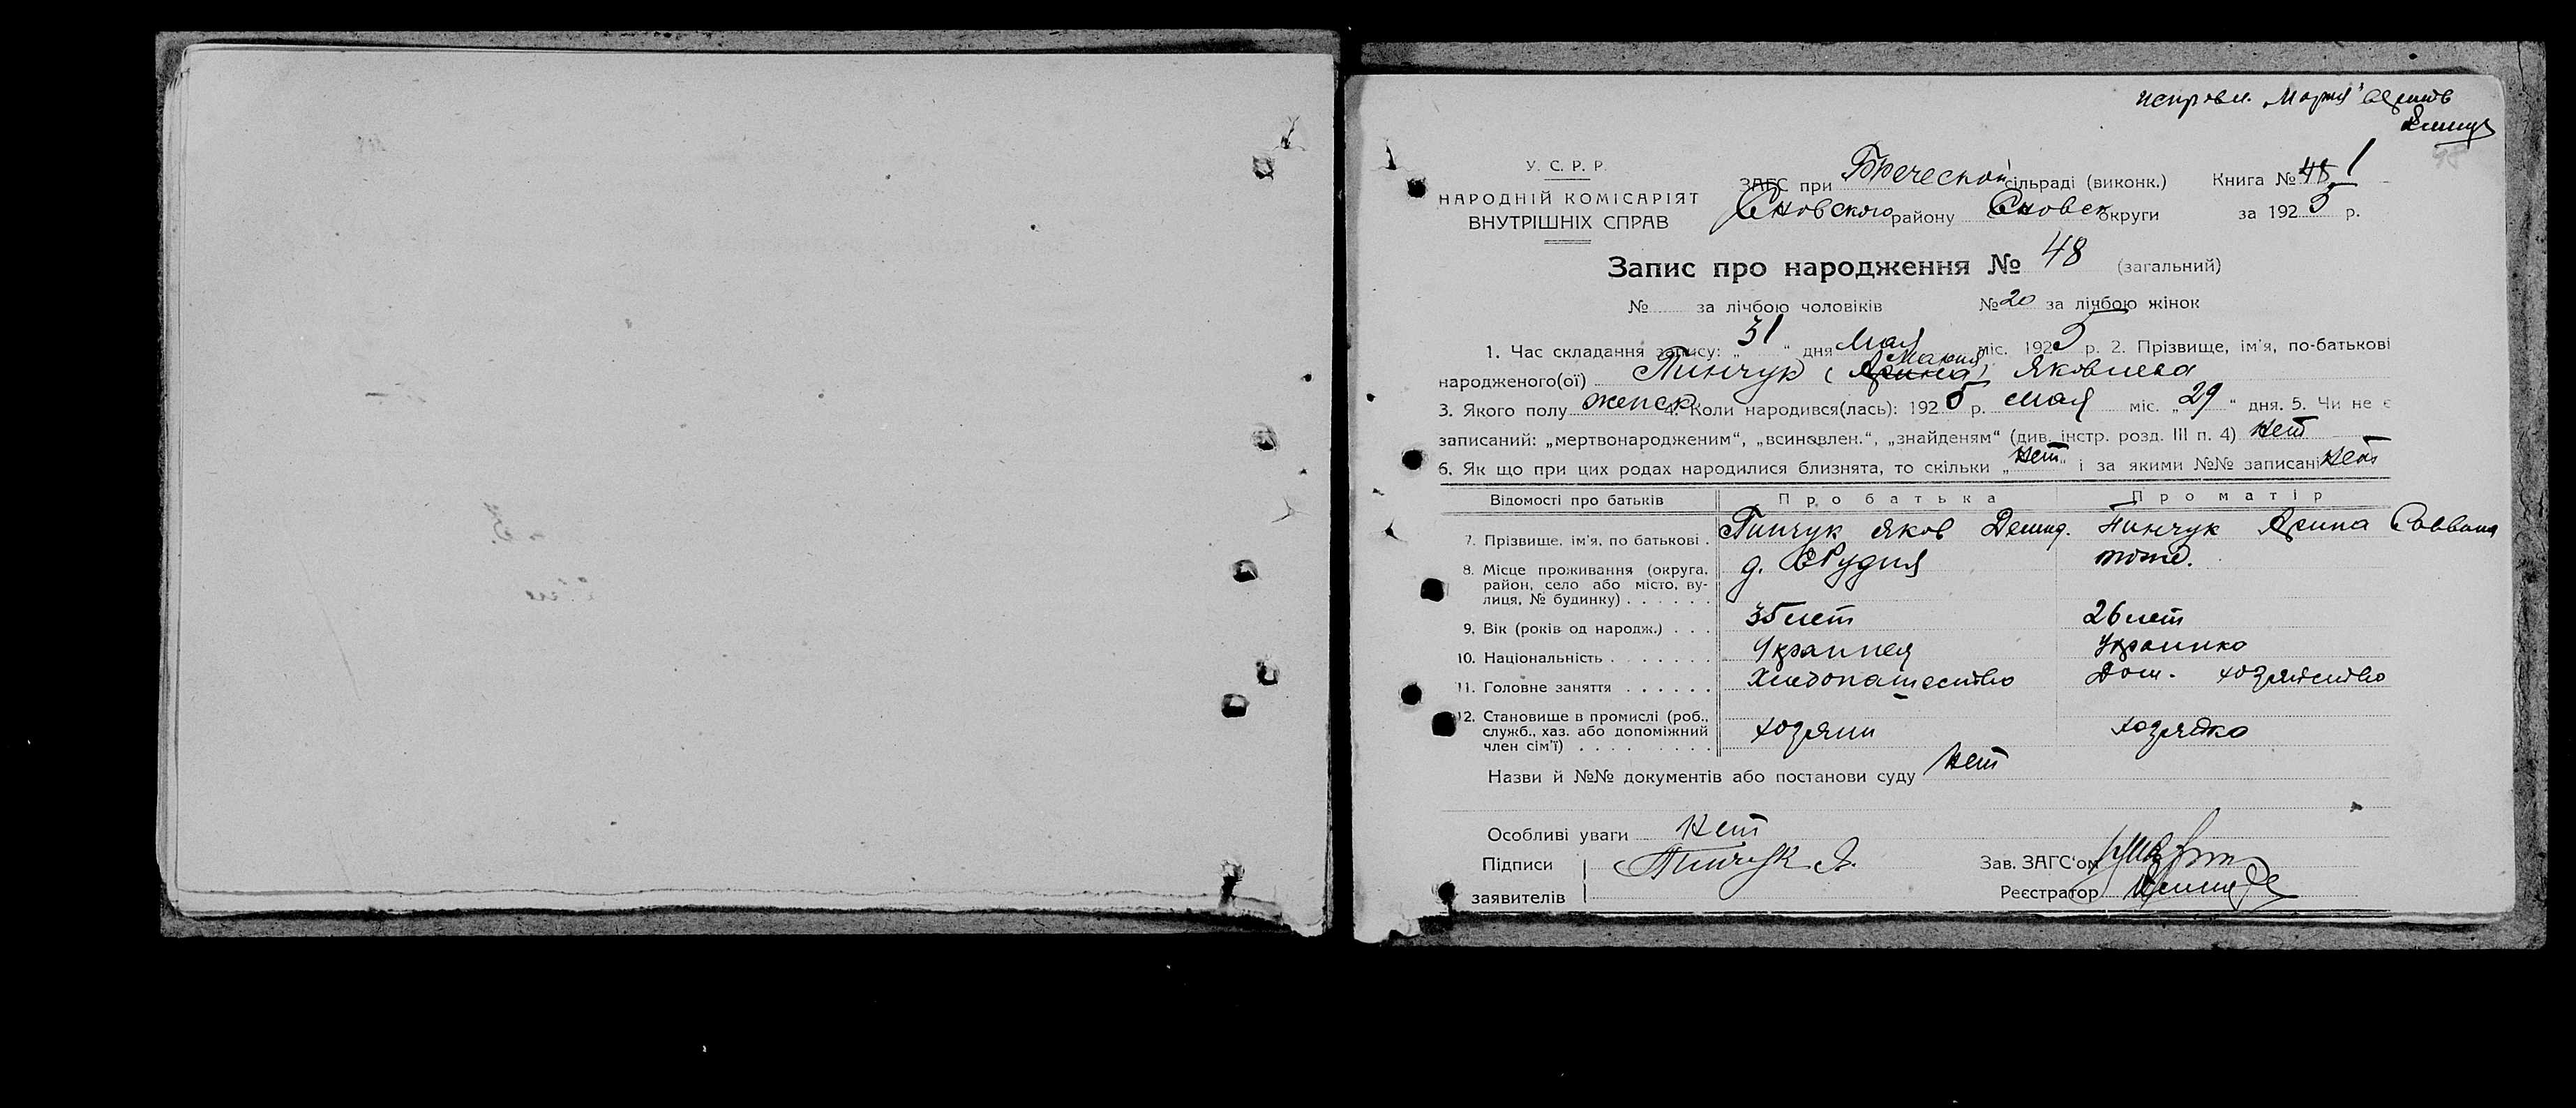 исправл. „Мария" верить
У. С. Р. Р.
НАРОДНІЙ КОМІСАРІЯТ
ВНУТРІШНІХ СПРАВ
ЗАГС при Бреческой сільраді (виконк.) Книга № 48 1
Сновского району Сновск округи за 1925 р.
Запис про народження № 48 (загальний)
№ за лічбою чоловіків № 20 за лічбою жінок
1. Час складання запису: „31" дня Мая міс. 1925 р. 2. Прізвище, ім'я, по-батькові
Мария
народженого(ої) Пинчук (Арина) Яковлева
3. Якого полу женск. 4. Коли народився(лась): 1925 р. мая міс. „29" дня. 5. Чи не є
записаний: „мертвонародженим", „всиновлен.", „знайденям" (див. інстр. розд. III п. 4) нет
6. Як що при цих родах народилися близнята, то скільки „нет" і за якими №№ записані нет
Відомості про батьків Про батька Про матір
7. Прізвище, ім'я, по батькові . Пинчук Яков Демид. Пинчук Арина Саввовна
8. Місце проживання (округа, район, село або місто, вулиця, № будинку) . . . . . . д. Рудня тоже.
9. Вік (років од народж.) . . . 35 лет 26 лет
10. Національність . . . . . . . Украинец Украинка
11. Головне заняття . . . . . . Хлебопашество Дом. хозяйство
12. Становище в промислі (роб., служб., хаз. або допоміжний член сім'ї) . . . . . . . . хозяин хозяйка
Назви й №№ документів або постанови суду Нет
Особливі уваги Нет
Підписи Пинчук Я. Зав. ЗАГС'ом
заявителів Реєстратор